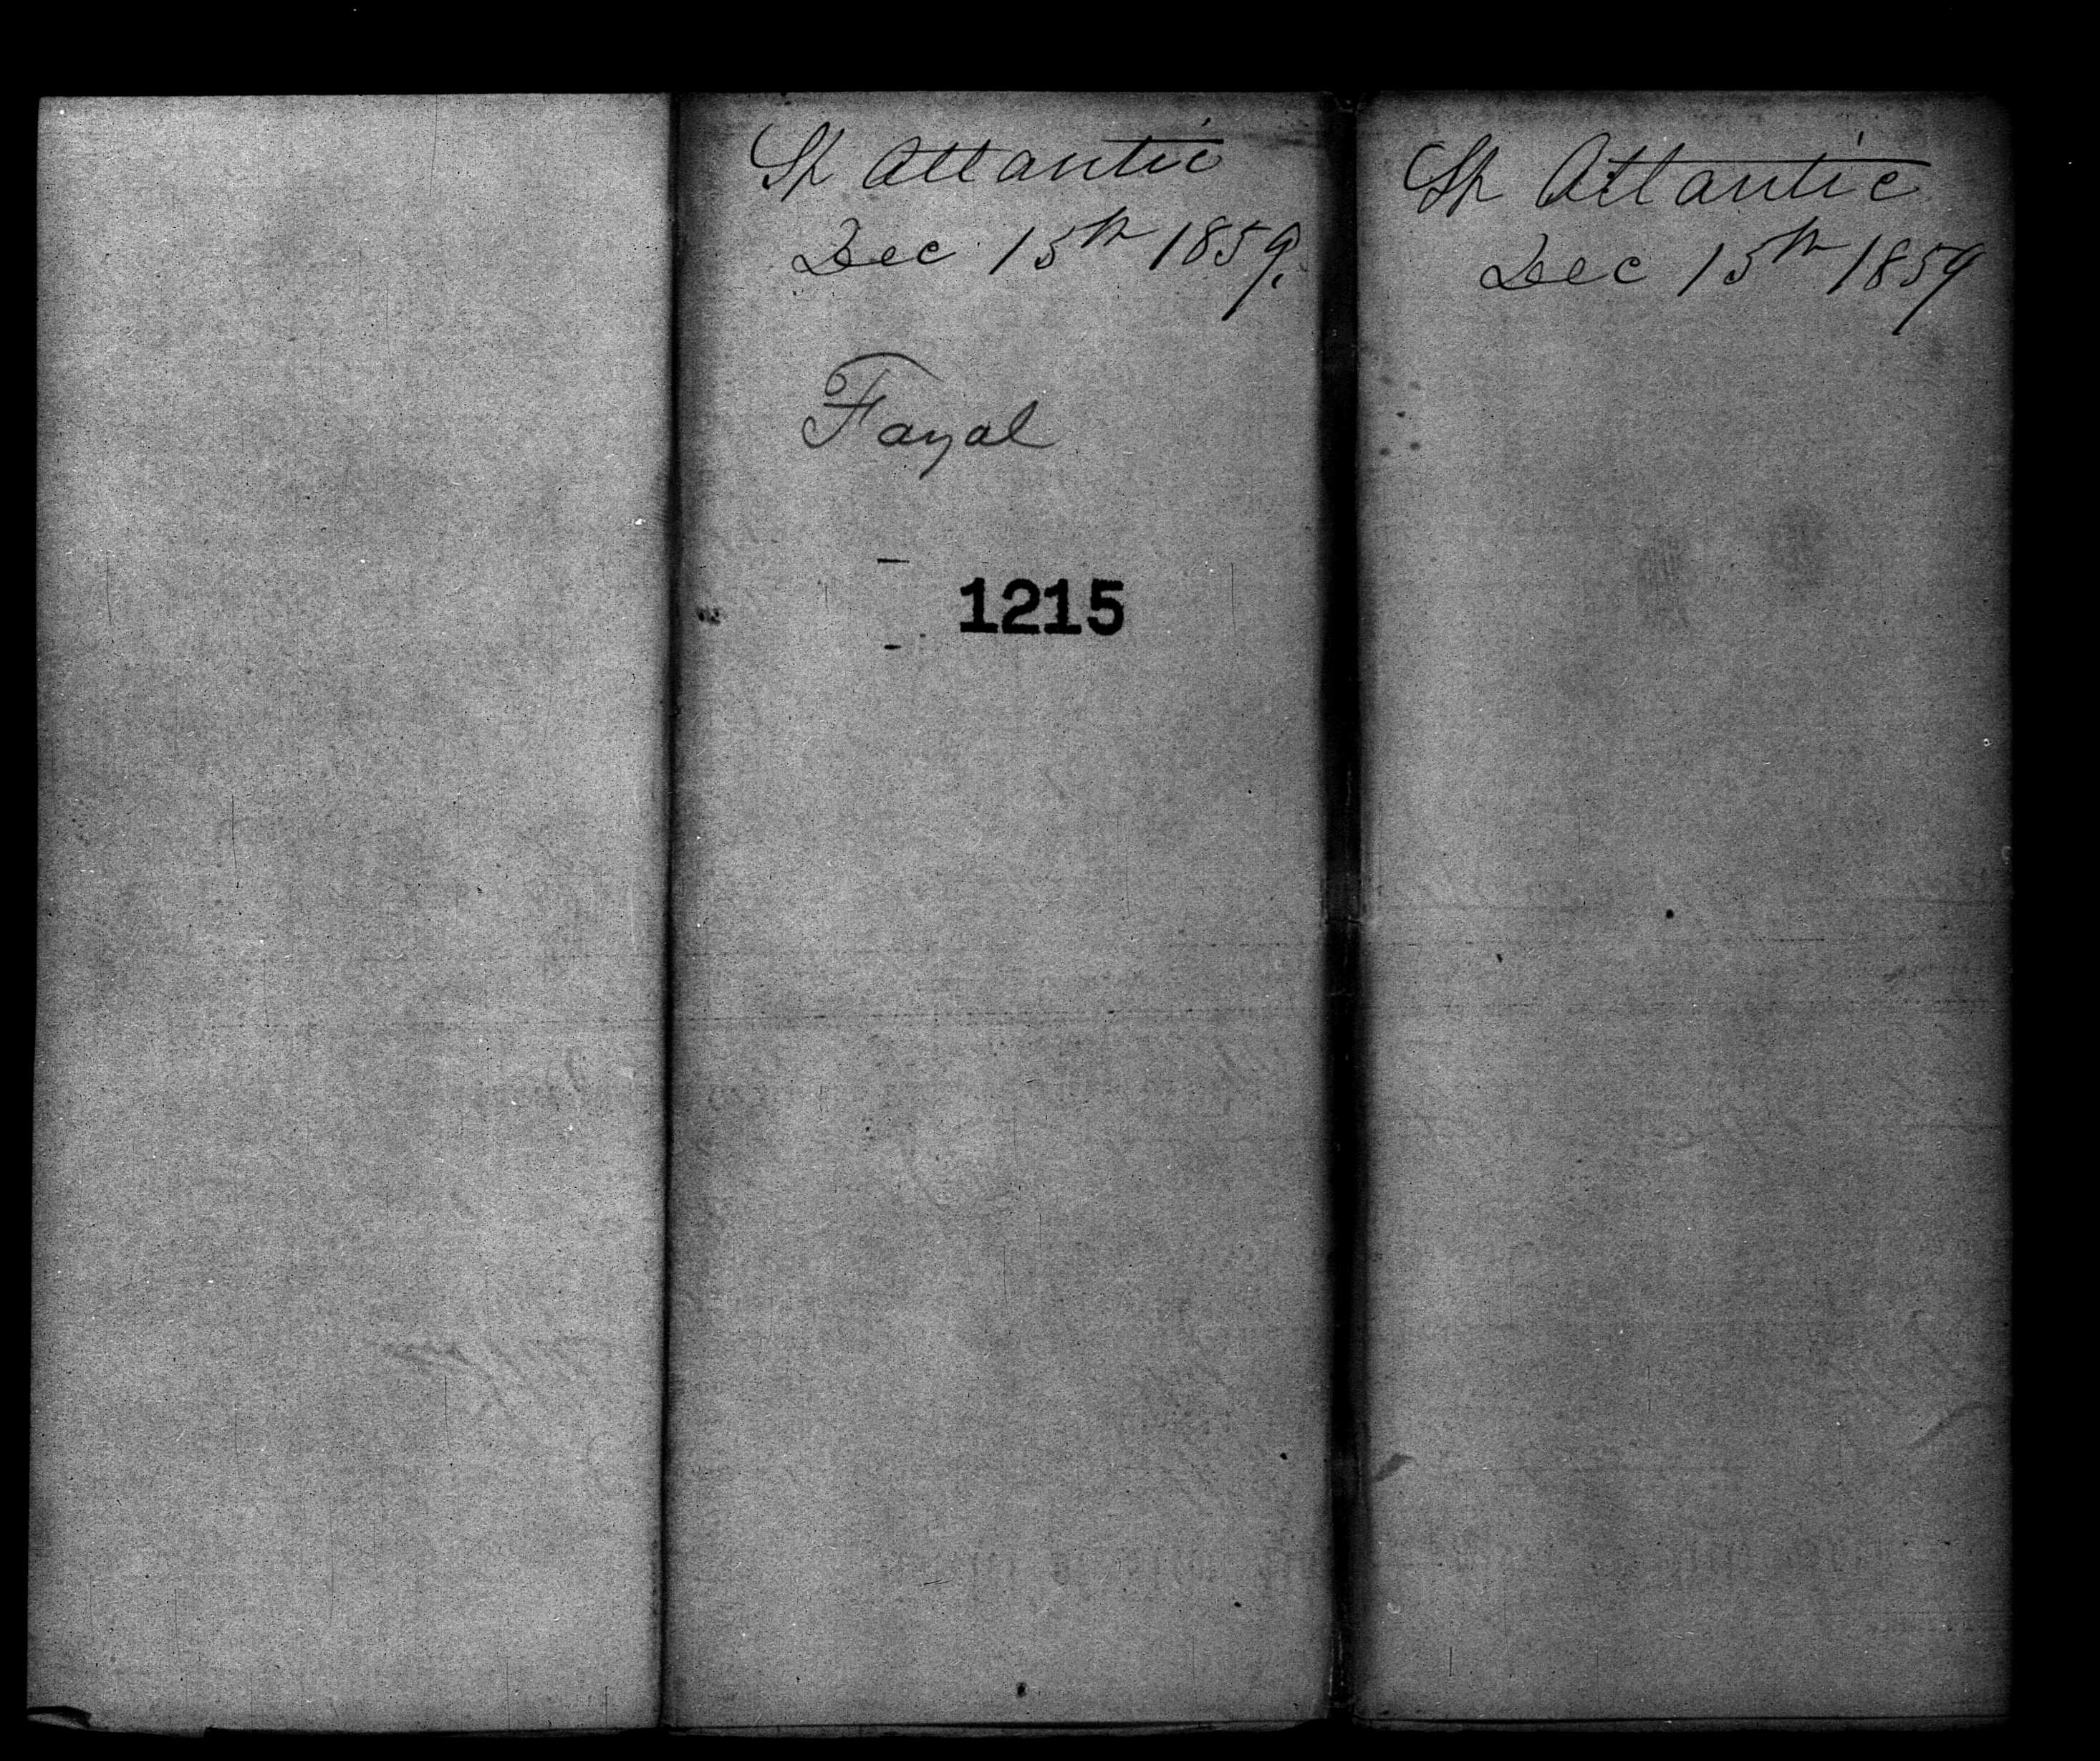 Sh Atlantic
Dec 15th 1859.
Fayal
1215
Sh Atlantic
Dec 15th 1859